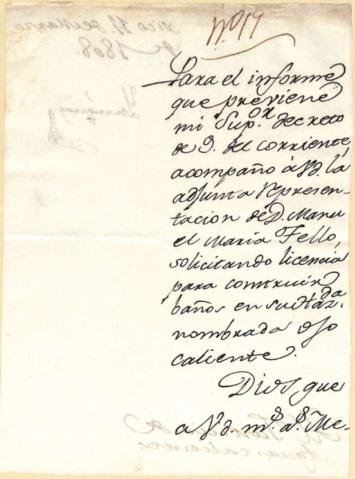 N.º 19
Para el informe
que previene
mi Sup.or decreto
de 9. del corriente,
acompaño à Vd. la
adjunta represen-
tacion de D. Manu
el Maria Fello,
solicitando licencia
para contruir
baños en su Haz.da
nombrada ojo
caliente.
Dios gue
a Vd. m.s a.s Me-